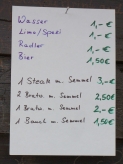 Wasser 1,-€
Limo/Spezi 1,-€
Radler 1,-€
Bier 1,50€
1 Steak m. Semmel 3,-€
2 Bratw m. Semmel 2,50€
1 Bratw m. Semmel 2,-€
1 Bauch m. Semmel 1,50€